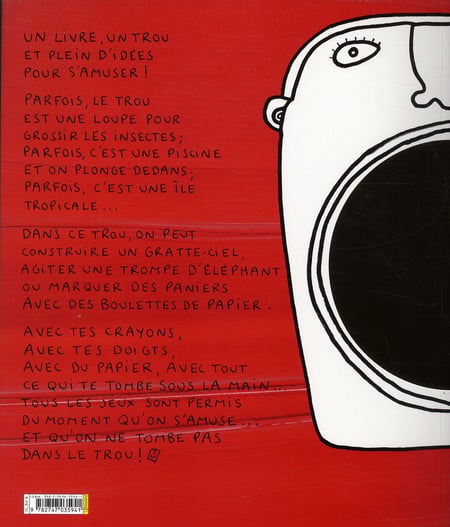 UN LIVRE, UN TROU
ET PLEIN D'IDÉES
POUR S'AMUSER !
PARFOIS, LE TROU
EST UNE LOUPE POUR
GROSSIR LES INSECTES ;
PARFOIS, C'EST UNE PISCINE
ET ON PLONGE DEDANS ;
PARFOIS, C'EST UNE ÎLE
TROPICALE ...
DANS CE TROU, ON PEUT
CONSTRUIRE UN GRATTE-CIEL,
AGITER UNE TROMPE D'ÉLÉPHANT
OU MARQUER DES PANIERS
AVEC DES BOULETTES DE PAPIER.
AVEC TES CRAYONS,
AVEC TES DOIGTS,
AVEC DU PAPIER, AVEC TOUT
CE QUI TE TOMBE SOUS LA MAIN ...
TOUS LES JEUX SONT PERMIS
DU MOMENT QU'ON S'AMUSE ...
ET QU'ON NE TOMBE PAS
DANS LE TROU !
9 782747 035941